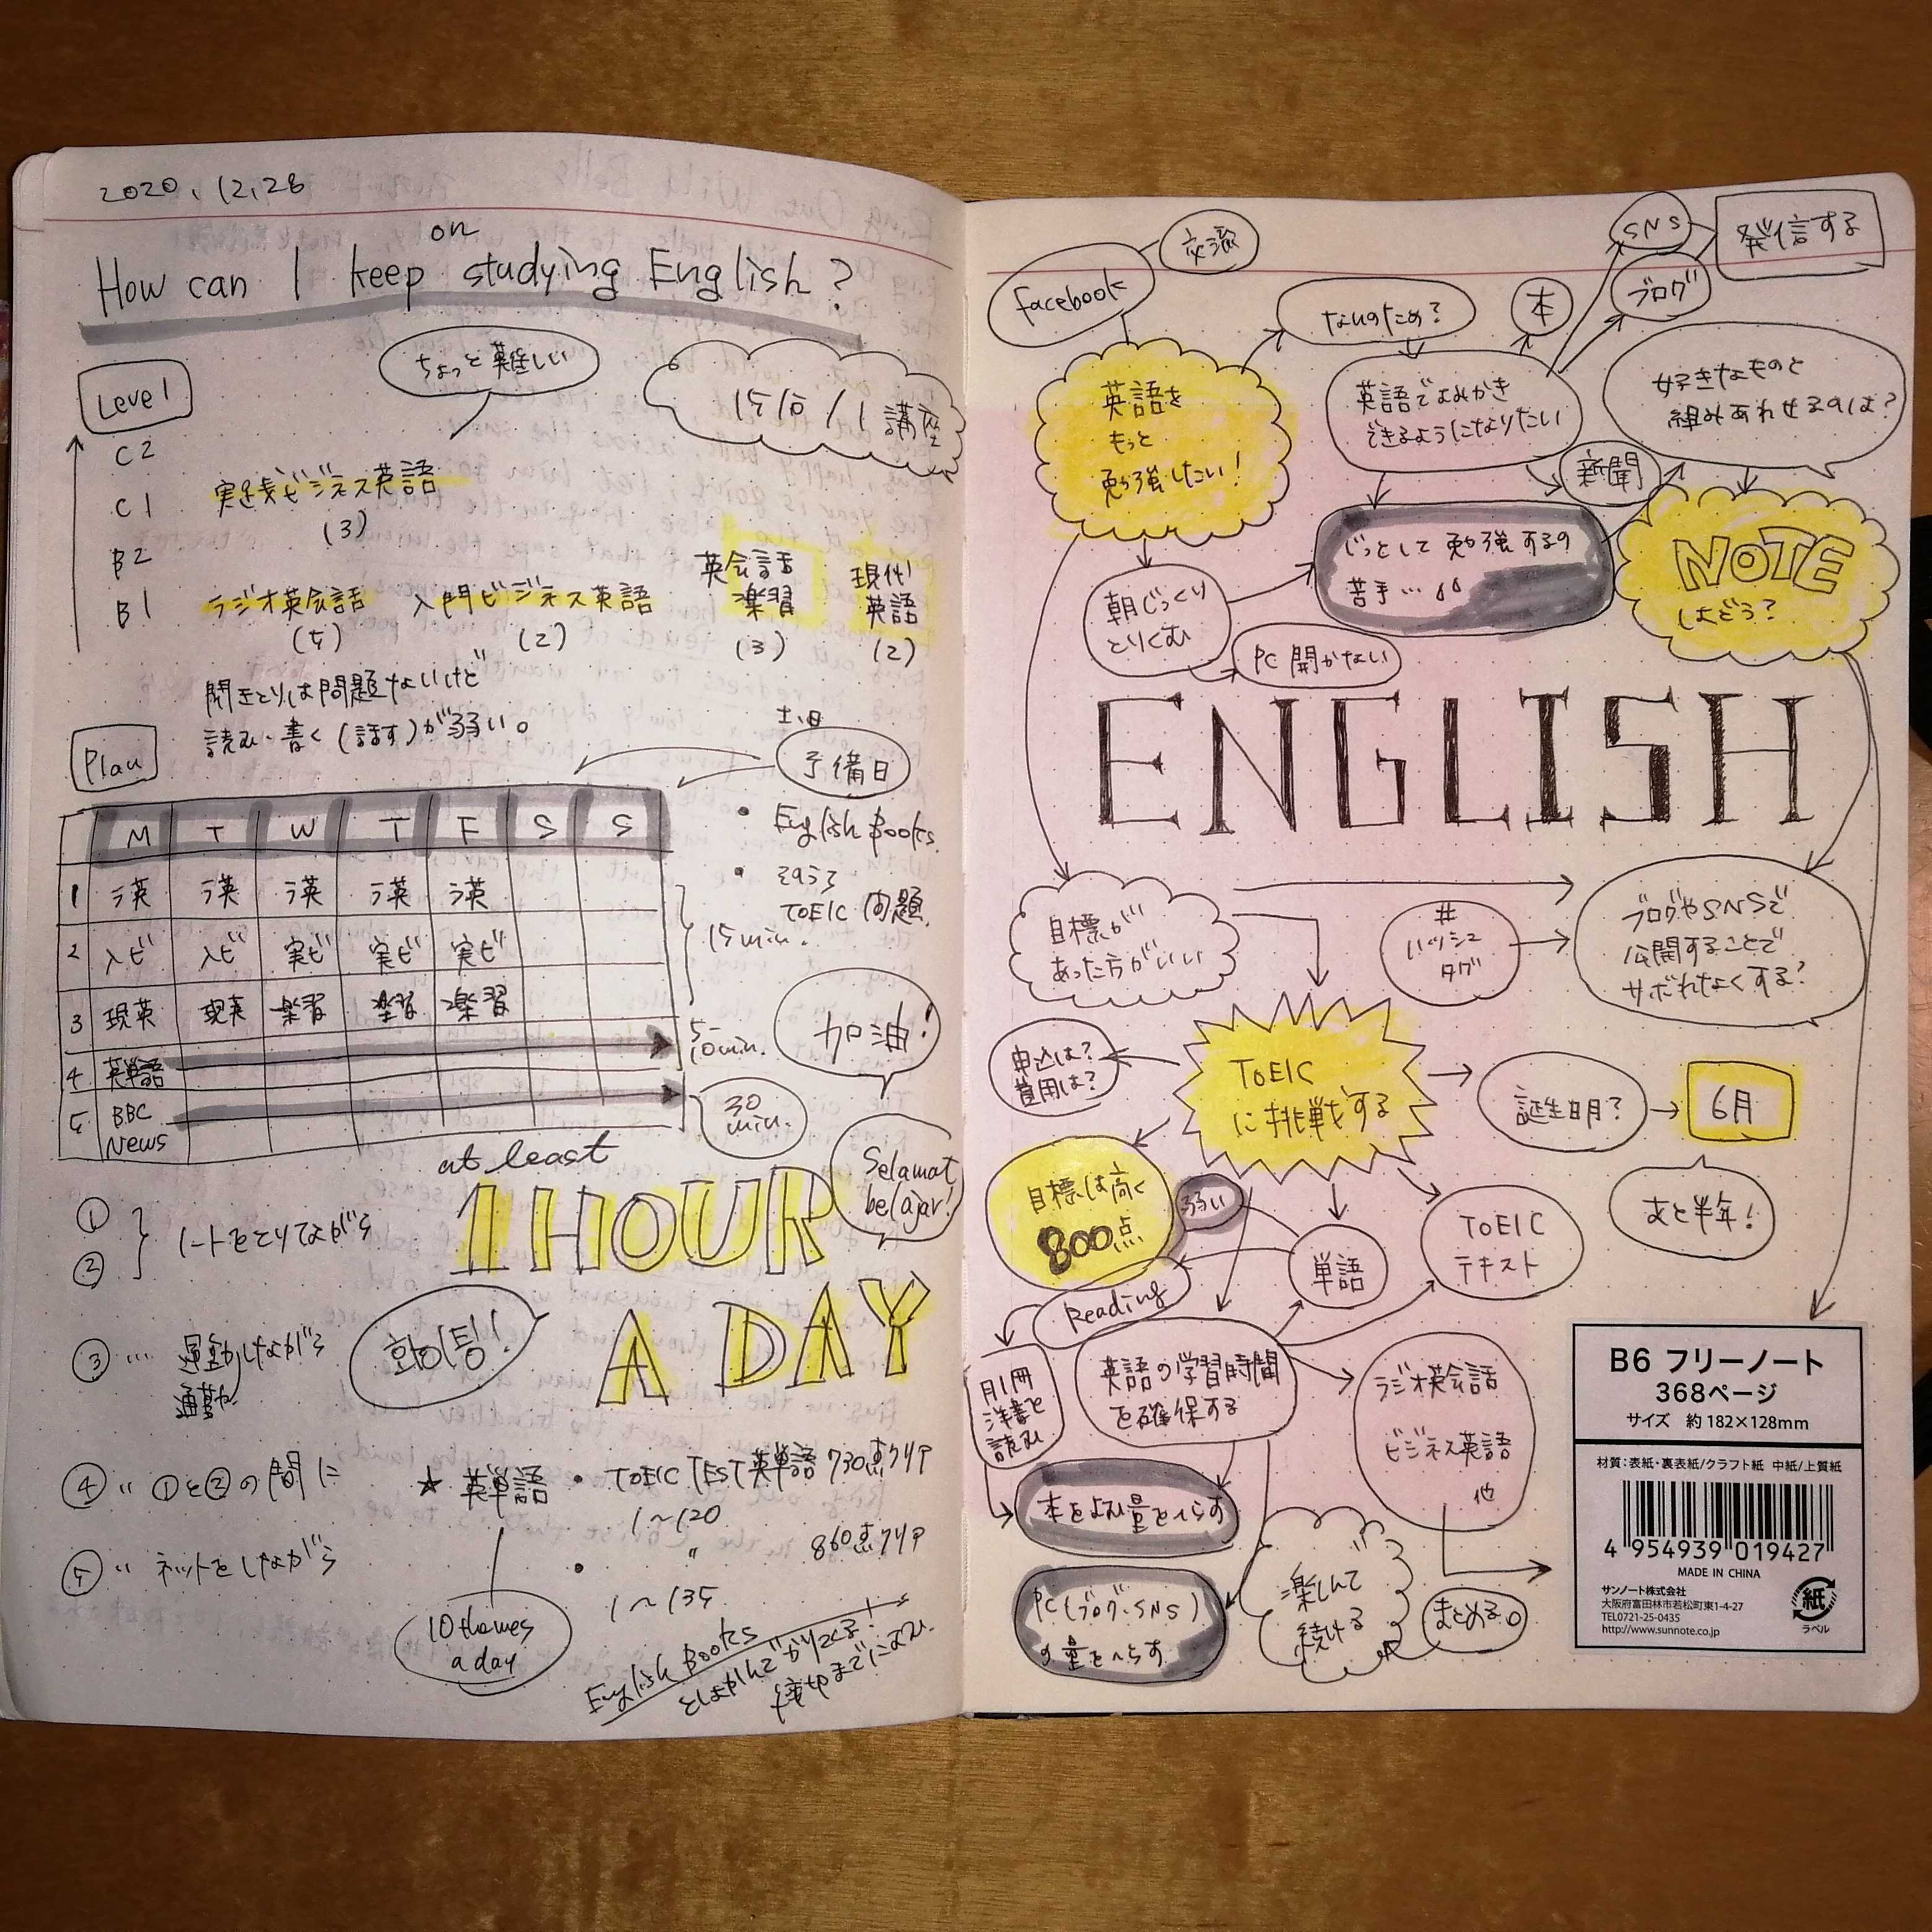 2020.12.28
How can I keep on studying English?
Level
ちょっと難しい
15分/1講座
C2
C1
B2
B1
実践ビジネス英語
(3)
ラジオ英会話
(5)
入門ビジネス英語
(2)
英会話
楽習
(3)
現代
英語
(2)
聞きとりは問題ないけど
読み・書く(話す)が弱い。
Plan
土日
予備日
• English Books.
• そろそろ
TOEIC 問題
M T W T F S S
1 ラ英 ラ英 ラ英 ラ英 ラ英
2 入ビ 入ビ 実ビ 実ビ 実ビ
3 現英 現英 楽習 楽習 楽習
4 英単語
5 BBC
News
15min.
5-
10min.
30
min.
加油!
Selamat
belajar!
at least
1 HOUR
A DAY
화이팅!
①
②
ノートをとりながら
③ … 運動しながら
通勤
④ 〃 ①と②の間に
⑤ 〃 ネットをしながら
★ 英単語
• TOEIC TEST 英単語 730点クリア
1~120
• 〃 860点クリア
1~135
10 themes
a day
English Books
facebook
交流
SNS
発信する
ブログ
本
なんのため?
英語を
もっと
勉強したい!
英語でよみかき
できるようになりたい
好きなものと
組みあわせるのは?
新聞
じっとして勉強するの
苦手…
NOTE
はどう?
朝じっくり
とりくむ
PC 開かない
ENGLISH
目標が
あった方がいい
#
ハッシュ
タグ
ブログやSNSで
公開することで
サボれなくする?
申込は?
費用は?
TOEIC
に挑戦する
誕生日月?
6月
あと半年!
目標は高く
800点
弱い
単語
TOEIC
テキスト
Reading
月1冊
洋書を
読む
英語の学習時間
を確保する
ラジオ英会話
ビジネス英語
他
本をよむ量をへらす
PC(ブログ・SNS)
の量をへらす
楽しんで
続ける
まとめる。
B6 フリーノート
368ページ
サイズ 約182×128mm
材質:表紙・裏表紙/クラフト紙 中紙/上質紙
4 954939 019427
MADE IN CHINA
サンノート株式会社
大阪府富田林市若松町東1-4-27
TEL0721-25-0435
http://www.sunnote.co.jp
紙
ラベル